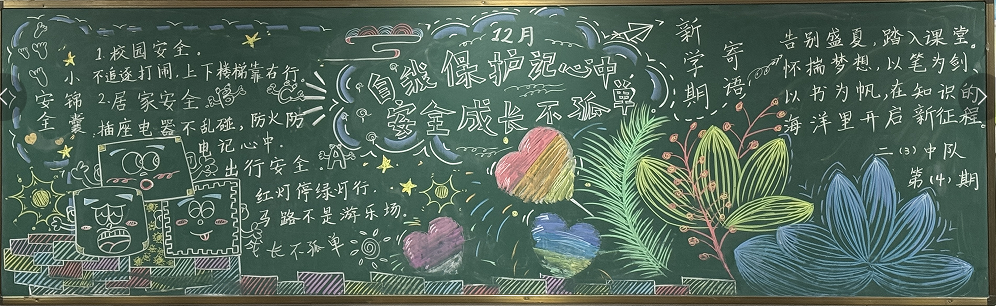 安全小锦囊
1.校园安全。
不追逐打闹,上下楼梯靠右行。
2.居家安全
插座电器不乱碰,防火防
电记心中.
出行安全
红灯停绿灯行.
马路不是游乐场.
成长不孤单
12月
自我保护记心中
安全成长不孤单
新学期
寄语
告别盛夏,踏入课堂。
怀揣梦想,以笔为剑,
以书为帆,在知识的
海洋里开启新征程。
二(3)中队
第(4)期